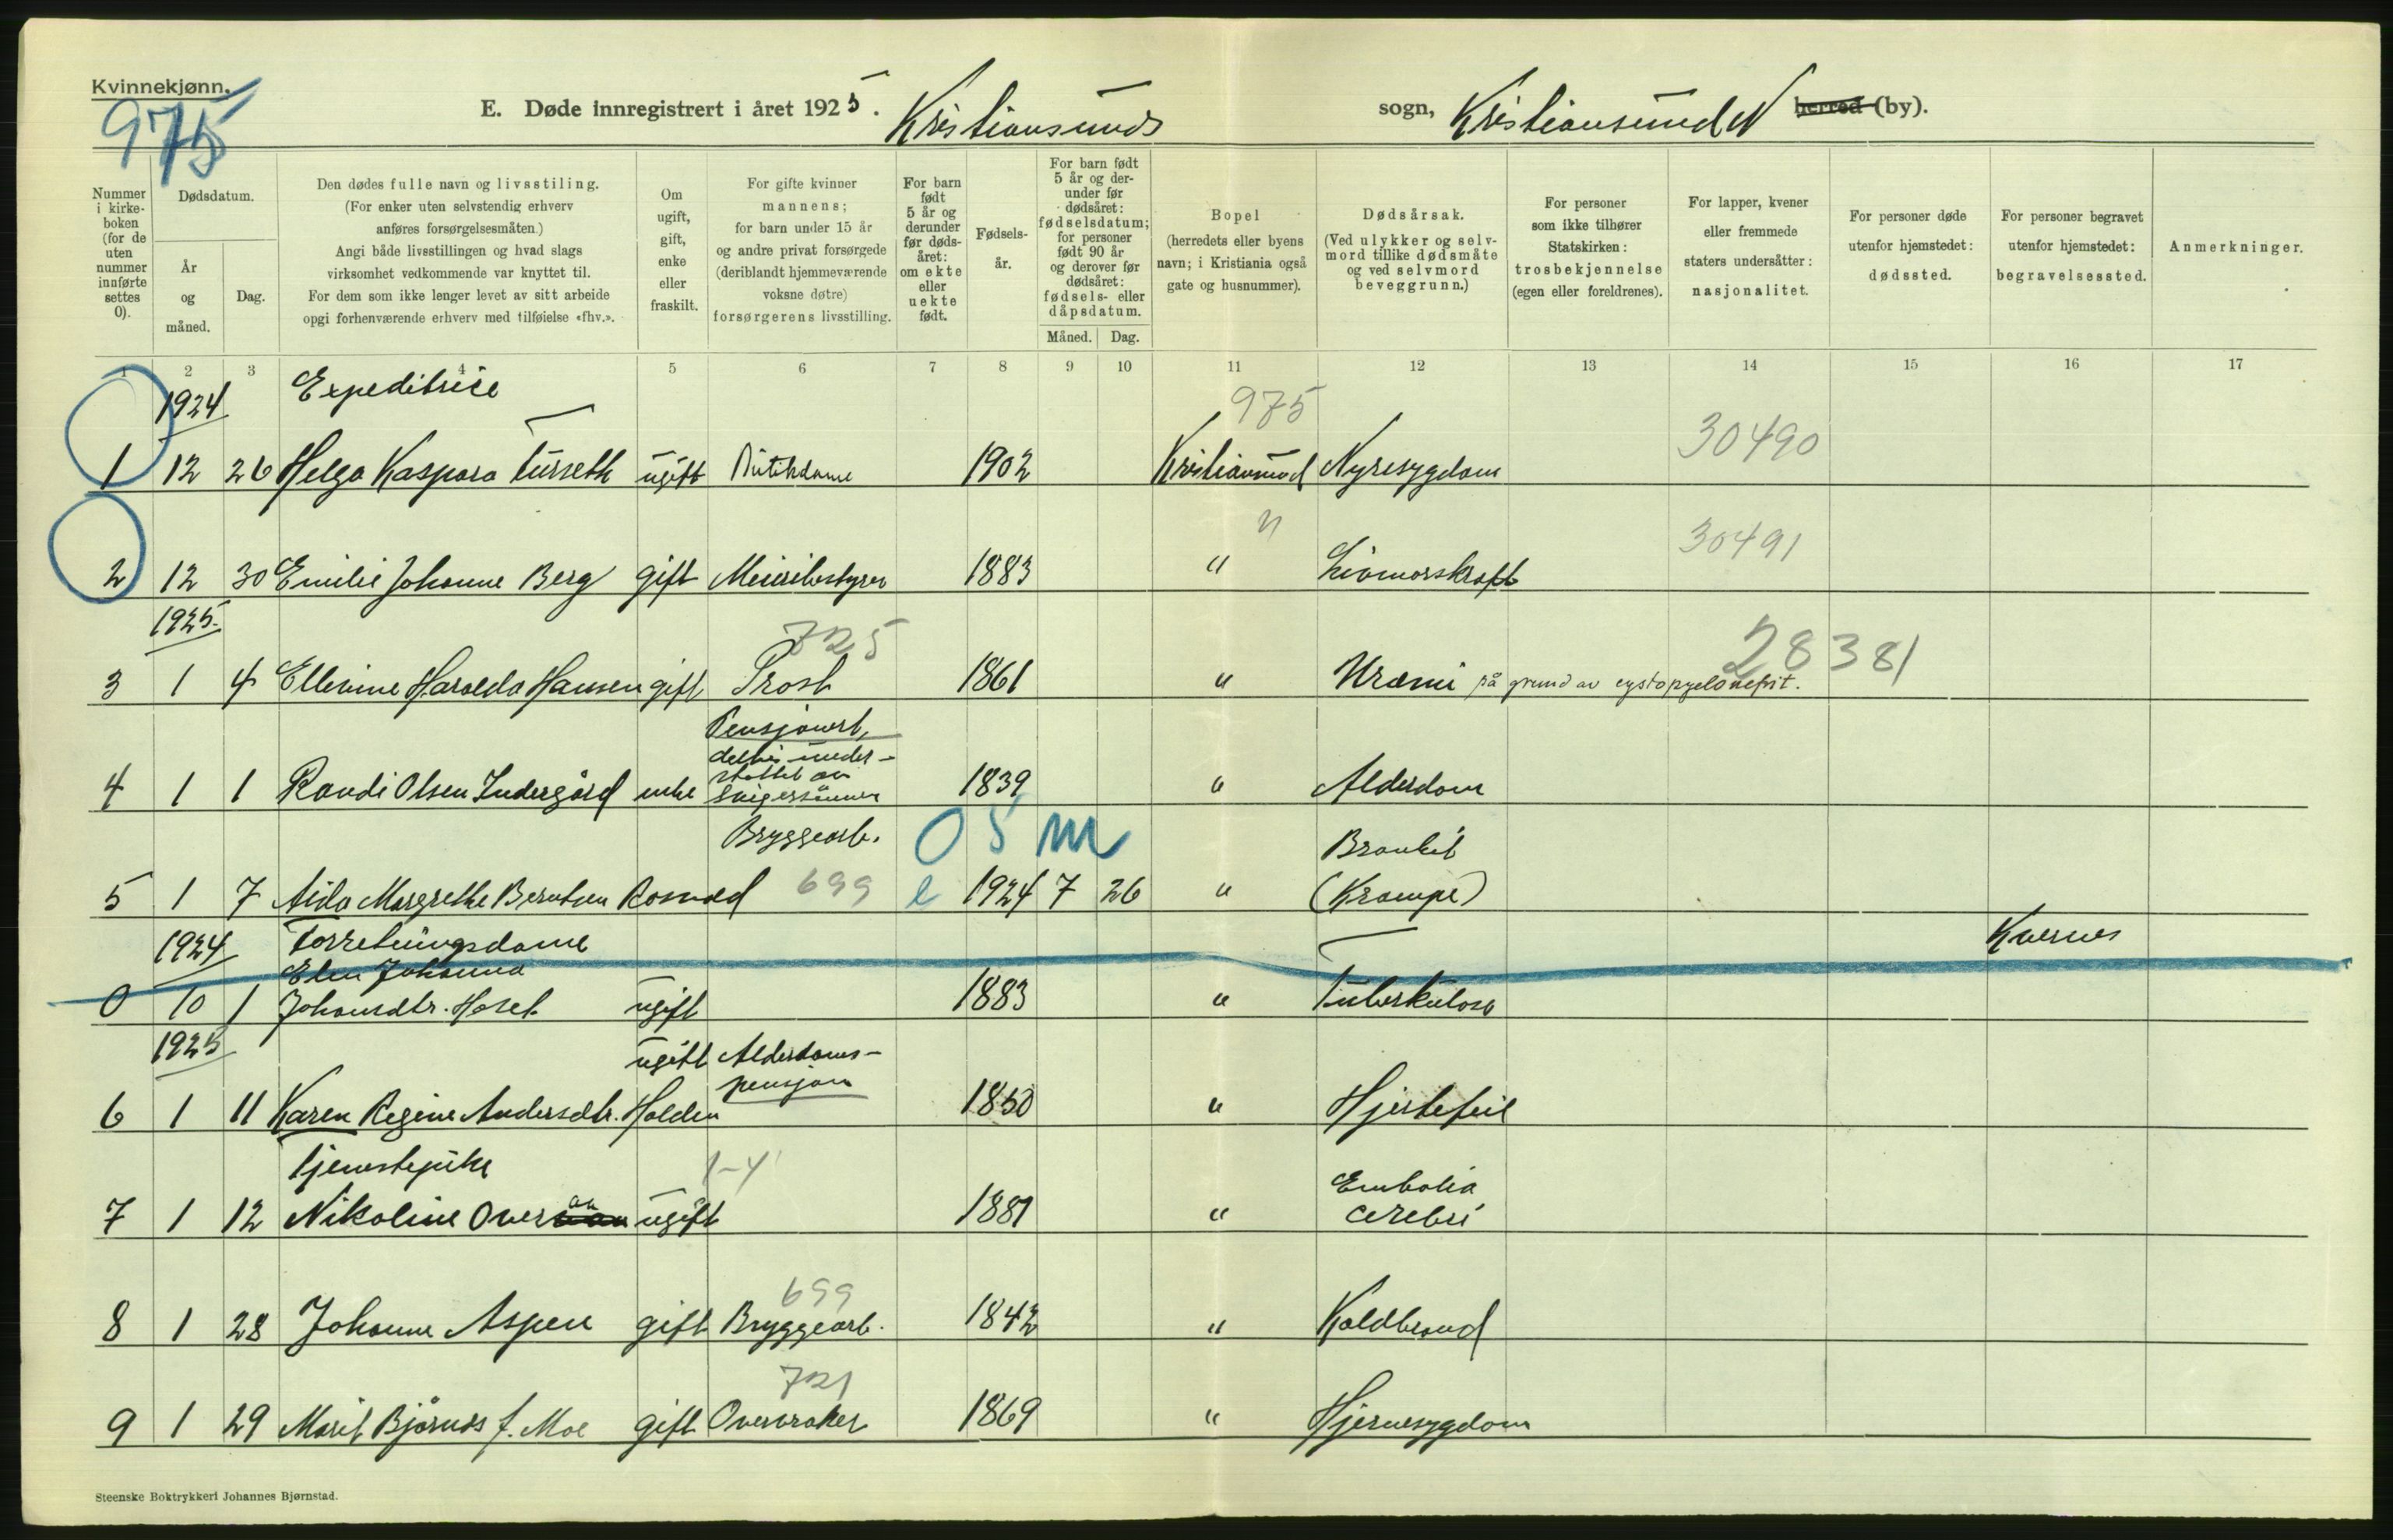 Kvinnekjønn.
975
E. Døde innregistrert i året 1925. Kristiansunds sogn, Kristiansund N herred (by).
Nummer i kirkeboken (for de uten nummer innførte settes 0).
Dødsdatum.
År og måned.
Dag.
Den dødes fulle navn og livsstiling.
(For enker uten selvstendig erhverv
anføres forsørgelsesmåten.)
Angi både livsstillingen og hvad slags
virksomhet vedkommende var knyttet til.
For dem som ikke lenger levet av sitt arbeide
opgi forhenværende erhverv med tilføielse «fhv.».
Om ugift, gift, enke eller fraskilt.
For gifte kvinner
mannens;
for barn under 15 år
og andre privat forsørgede
(deriblandt hjemmeværende
voksne døtre)
forsørgerens livsstilling.
For barn født 5 år og derunder før dødsåret: om ekte eller uekte født.
Fødselsår.
For barn født 5 år og derunder før dødsåret: fødselsdatum; for personer født 90 år og derover før dødsåret: fødsels- eller dåpsdatum.
Måned. Dag.
Bopel
(herredets eller byens
navn; i Kristiania også
gate og husnummer).
Dødsårsak.
(Ved ulykker og selv-
mord tillike dødsmåte
og ved selvmord
beveggrunn.)
For personer
som ikke tilhører
Statskirken:
trosbekjennelse
(egen eller foreldrenes).
For lapper, kvener
eller fremmede
staters undersåtter:
nasjonalitet.
For personer døde
utenfor hjemstedet:
dødssted.
For personer begravet
utenfor hjemstedet:
begravelsessted.
Anmerkninger.
1 2 3 4 5 6 7 8 9 10 11 12 13 14 15 16 17
1924 Expeditrice 975 30490
1 12 26 Helga Kaspara Tusseth ugift Butikdame 1902 Kristiansund Nyresygdom
" 30491
2 12 30 Emilie Johanne Berg gift Meieribestyrer 1883 " Livmorskræft
1925. 725 28381
3 1 4 Ellevine Haralda Hansen gift Prost 1861 " Uræmi på grund av cystopyelonefrit.
Pensjonert,
delvis under-
støttet av
4 1 1 Randi Olsen Indergård enke svigersønnen 1839 " Alderdom
Bryggearb. 0 5 m Bronkit
5 1 7 Aida Margrethe Berntsen Rosvold 699 e 1924 7 26 " (Krampe)
1924 Forretningsdame Kvernes
Elen Johanna
0 10 1 Johansdtr. Hoset ugift 1883 " Tuberkulose
1925 ugift Alderdoms-
pensjon
6 1 11 Karen Regine Andersdtr. Holden 1850 " Hjertefeil
Tjenestepike 1-4 Embolia
7 1 12 Nikoline Overåan ugift 1881 " cerebri
699
8 1 28 Johanne Aspen gift Bryggearb. 1842 " Koldbrand
721
9 1 29 Marit Bjørnås f. Moe gift Overvraker 1869 " Hjernesygdom
Steenske Boktrykkeri Johannes Bjørnstad.